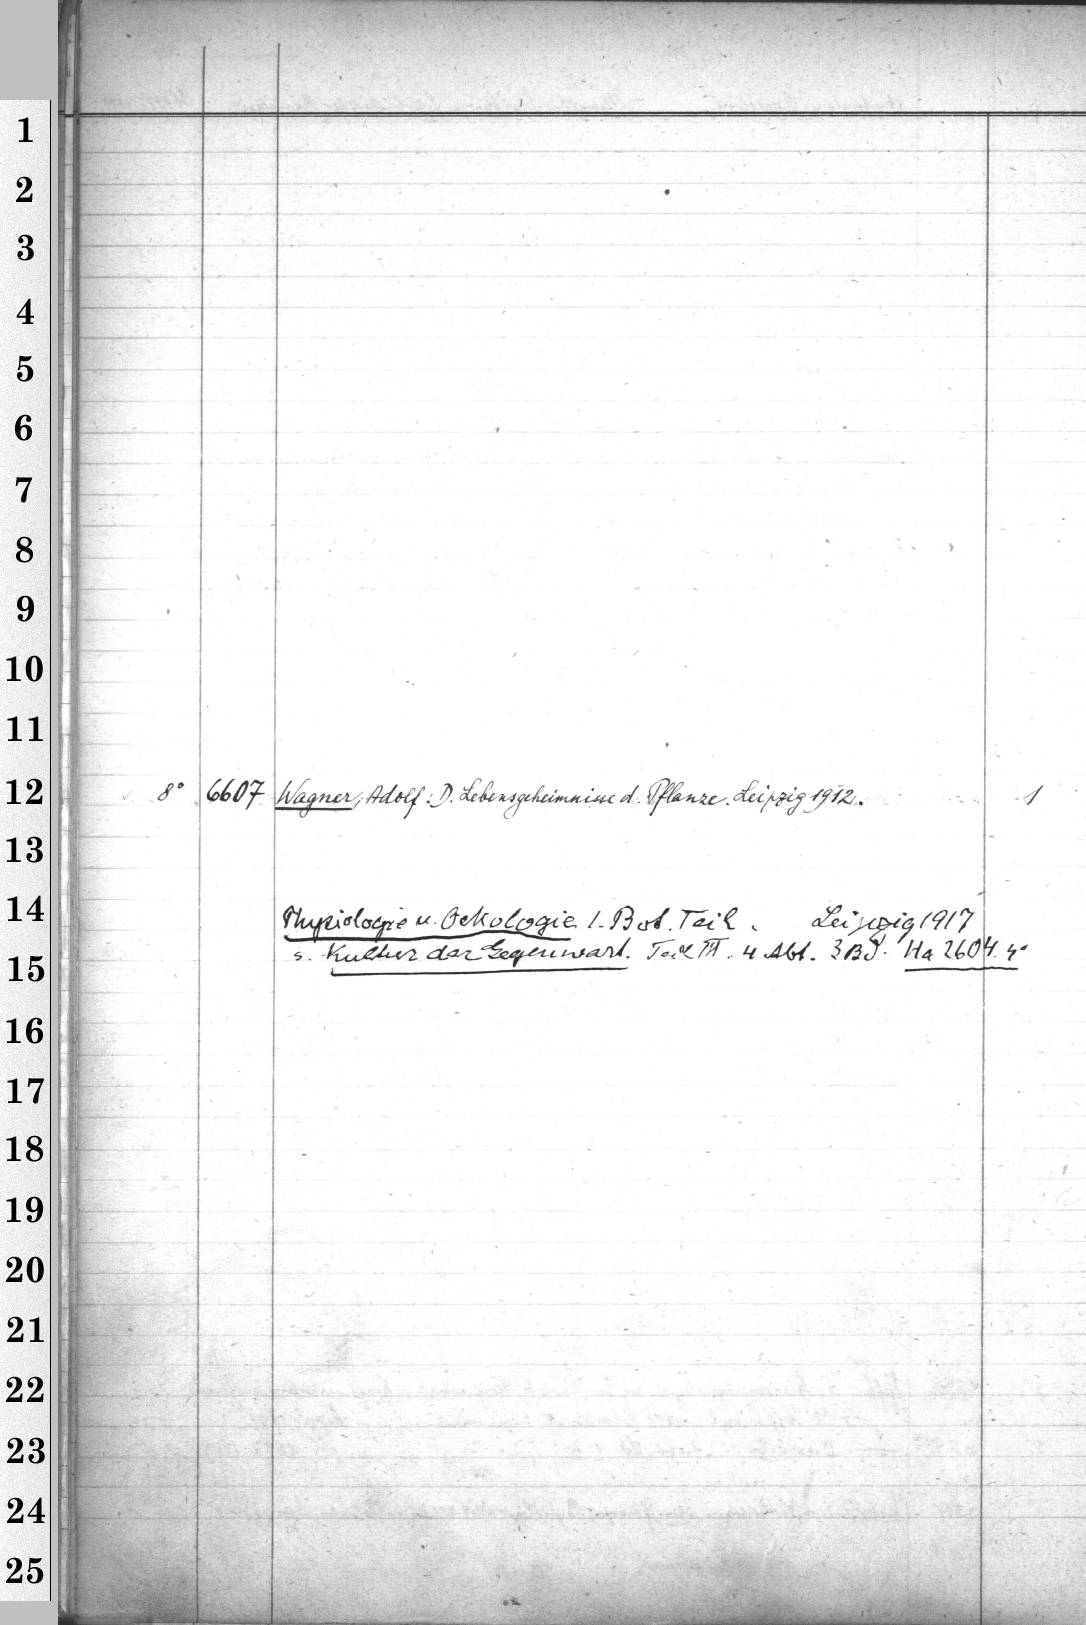 1
2
3
4
5
6
7
8
9
10
11
12
8° 6607 Wagner, Adolf: D. Lebensgeheimnisse d. Pflanze. Leipzig 1912. 1
13
14
Physiologie u. Oekologie 1. Bot. Teil. Leipzig 1917
s. Kultur der Gegenwart. Teil III. 4 Abt. 3 Bd. Ha 2604. 4°
15
16
17
18
19
20
21
22
23
24
25